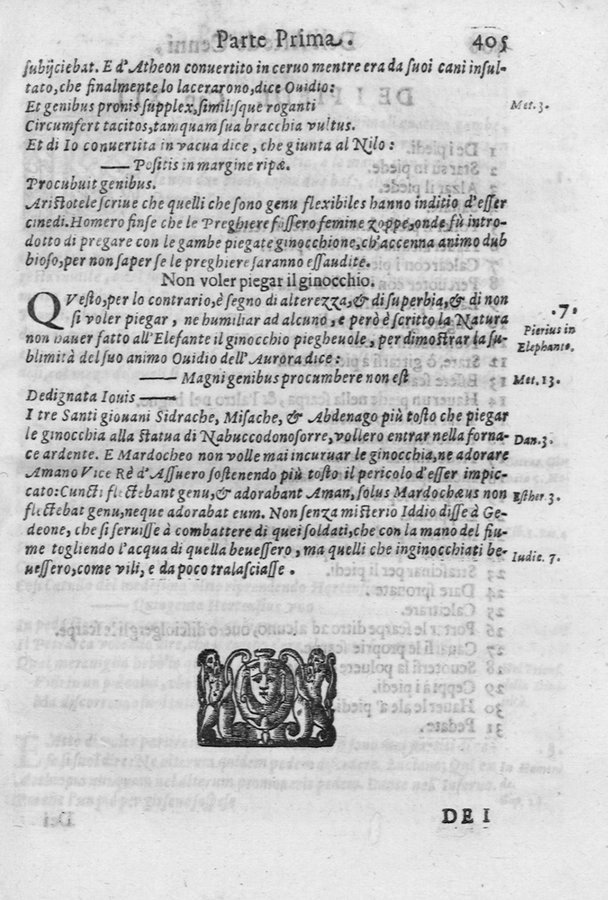 Parte Prima. 405
subijciebat. E d'Atheon conuertito in ceruo mentre era da suoi cani insul-
tato, che finalmente lo lacerarono, dice Ouidio:
Et genibus pronis supplex, similisque roganti Met. 3.
Circumfert tacitos, tamquam sua bracchia vultus.
Et di Io conuertita in vacua dice, che giunta al Nilo:
—— Positis in margine ripæ.
Procubuit genibus.
Aristotele scriue che quelli che sono genu flexibiles hanno inditio d'esser
cinedi. Homero finse che le Preghiere fussero femine zoppe, onde fù intro-
dotto di pregare con le gambe piegate ginocchione, ch'accenna animo dub
bioso, per non saper se le preghiere saranno essaudite.
Non voler piegar il ginocchio.
QVesto, per lo contrario, è segno di alterezza, & di superbia, & di non .7.
si voler piegar, ne humiliar ad alcuno, e però è scritto la Natura Pierius in
non hauer fatto all'Elefante il ginocchio piegheuole, per dimostrar la su- Elephante.
blimità del suo animo Ouidio dell'Aurora dice:
—— Magni genibus procumbere non est Met. 13.
Dedignata Iouis ——
I tre Santi giouani Sidrache, Misache, & Abdenago più tosto che piegar
le ginocchia alla statua di Nabuccodonosorre, vollero entrar nella forna- Dan. 3.
ce ardente. E Mardocheo non volle mai incuruar le ginocchia, ne adorare
Amano Vice Rè d'Assuero sostenendo più tosto il pericolo d'esser impic-
cato: Cuncti flectebant genu, & adorabant Aman, solus Mardochæus non Esther. 3.
flectebat genu, neque adorabat eum. Non senza misterio Iddio disse à Ge-
deone, che si seruisse à combattere di quei soldati, che con la mano del fiu-
me togliendo l'acqua di quella beuessero, ma quelli che inginocchiati be- Iudic. 7.
uessero, come vili, e da poco tralasciasse.
DE I